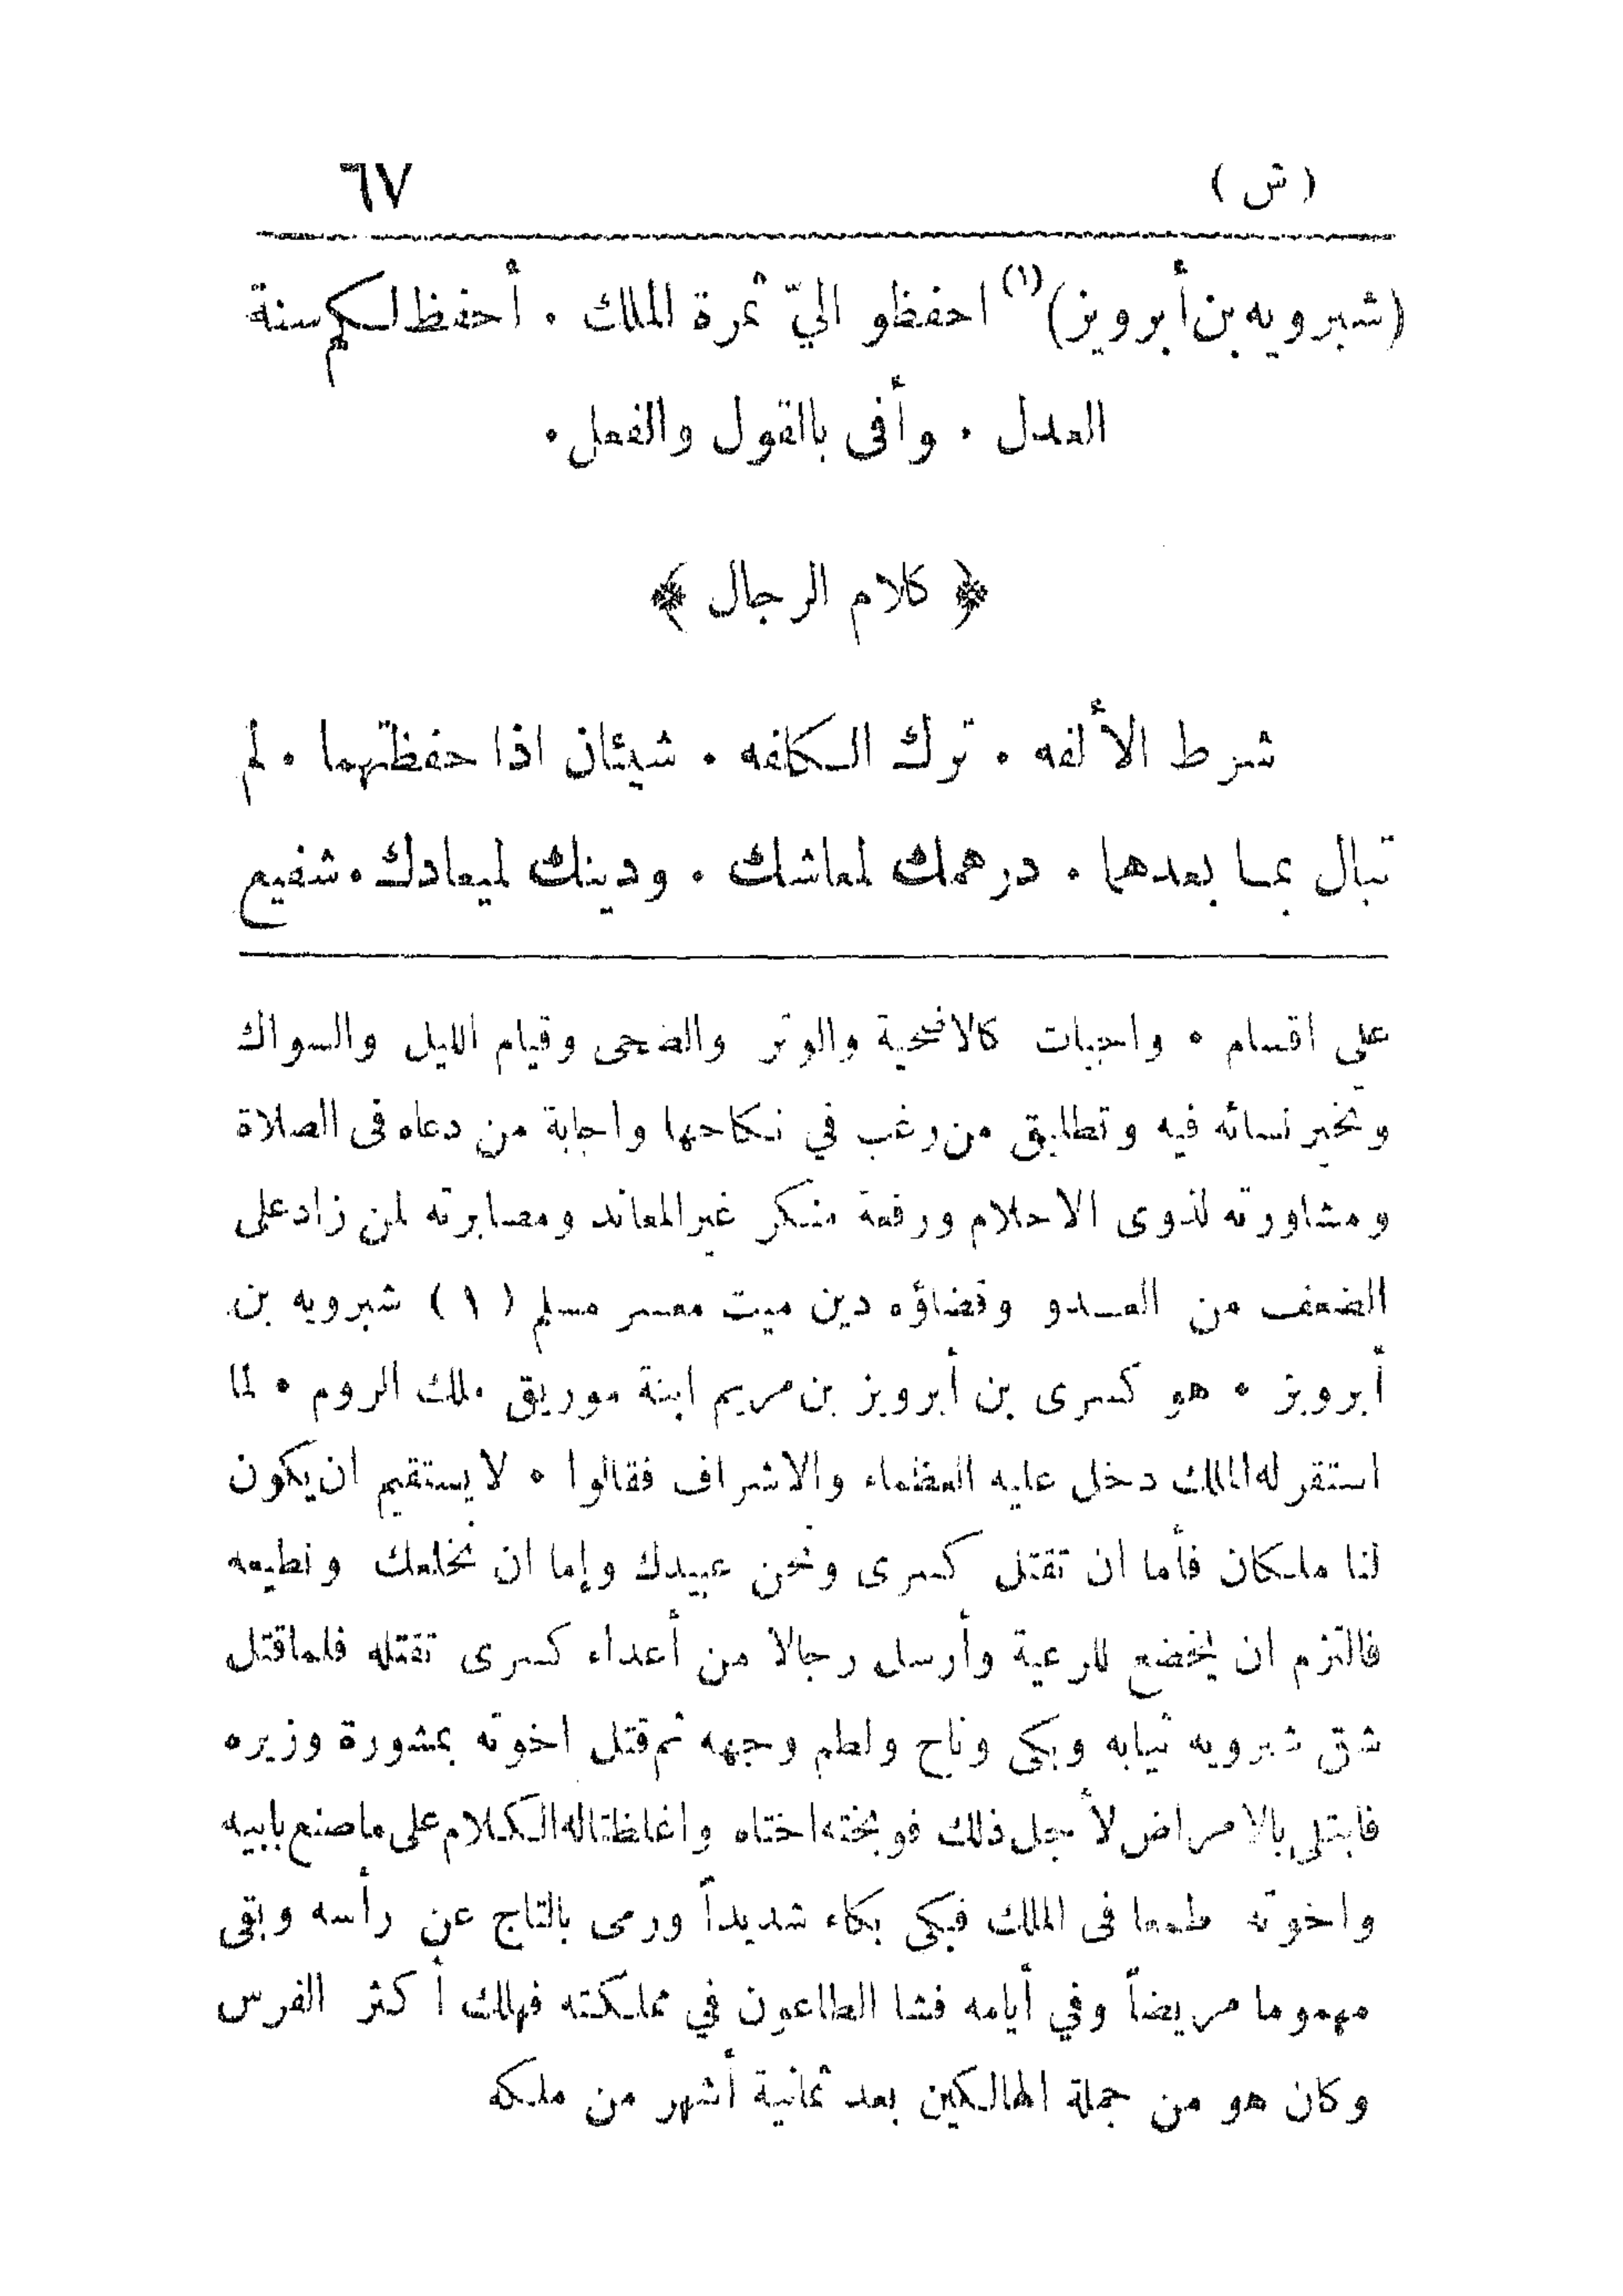 (ش) ٦٧
(شيرويه بن أبرويز)(١) احفظو اليّ ثمرة الملك ۰ أحفظ لكم سنة
العدل ۰ وأفى بالقول والفعل ۰
﴿ كلام الرجال ﴾
شرط الألفه ۰ ترك الكلفه ۰ شيئان اذا حفظتهما ۰ لم
تبال بما بعدهما ۰ درهمك لمعاشك ۰ ودينك لميعادك ۰ شفيع
على اقسام ۰ واجبات كالاضحية والوتر والضحى وقيام الليل والسواك
وتخير نسائه فيه وتطليق من رغب في نكاحها واجابة من دعاه فى الصلاة
ومشاورته لذوى الاحلام ورفعة منكر غير المعاند ومصابرته لمن زاد على
الضعف من العدو وقضاؤه دين ميت معسر مسلم (١) شيرويه بن
أبرويز ۰ هو كسرى بن أبرويز بن مريم ابنة موريق ملك الروم ۰ لما
استقر له الملك دخل عليه العظماء والاشراف فقالوا ۰ لا يستقيم ان يكون
لنا ملكان فأما ان تقتل كسرى ونحن عبيدك وإما ان نخلعك ونطيعه
فالتزم ان يخضع للرعية وأرسل رجالا من أعداء كسرى تقتله فلما قتل
شق شيرويه ثيابه وبكى وناح ولطم وجهه ثم قتل اخوته بمشورة وزيره
فابتلى بالامراض لأجل ذلك فوبخته اختاه واغلظتا له الكلام على ما صنع بابيه
واخوته طمعا فى الملك فبكى بكاء شديداً ورمى بالتاج عن رأسه وبقى
مهموما مريضاً وفي أيامه فشا الطاعون في مملكته فهلك أكثر الفرس
وكان هو من جملة الهالكين بعد ثمانية أشهر من ملكه